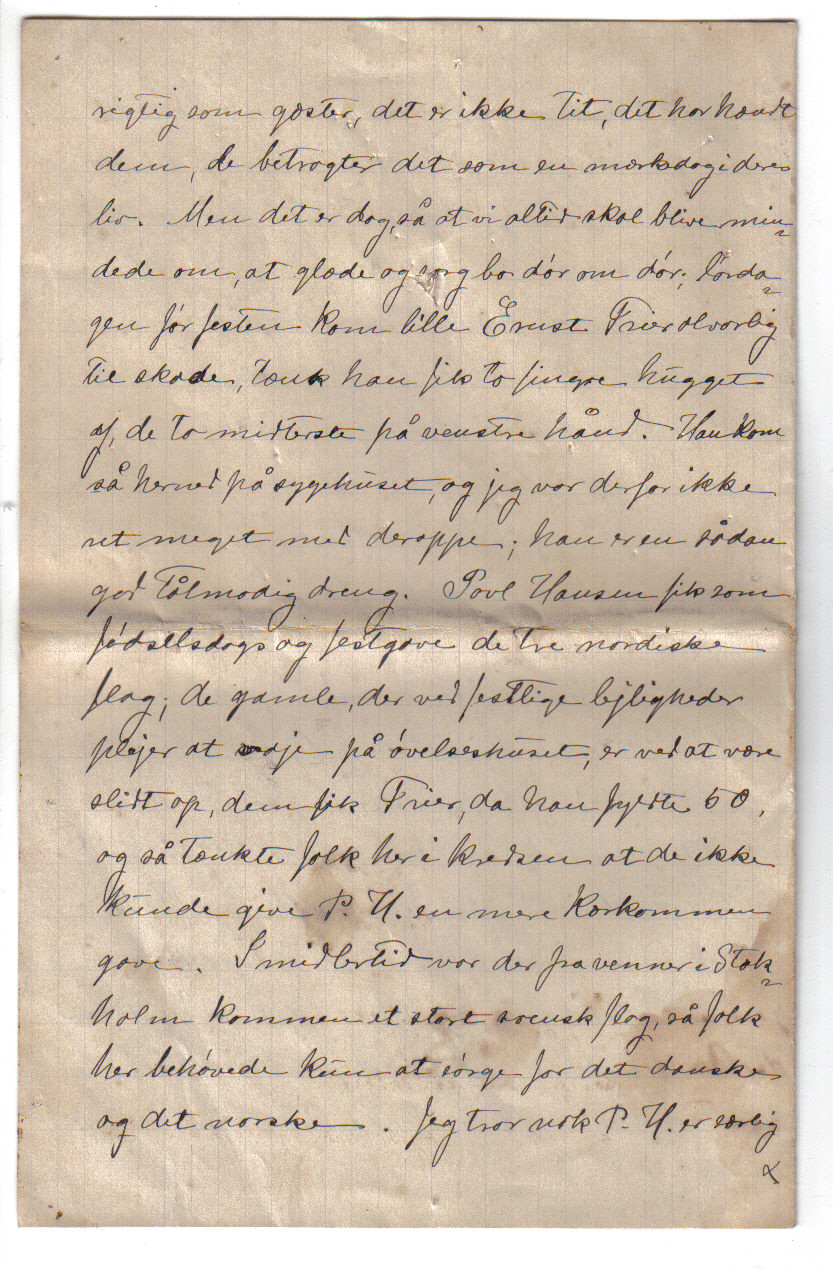 rigtig som gæster, det er ikke tit, det har hændt
dem, de betragter det som en mærkedag i deres
liv. Men det er dog, så at vi altid skal blive min=
dede om, at glæde og sorg bo dór om dór; lórda=
gen fór festen kom lille Ernst Trier alvorlig
til skade, tænk han fik to fingre hugget
af, de to midterste på venstre hånd. Han kom
så herned på sygehuset, og jeg var derfor ikke
ret meget med deroppe; han er en sådan
god tålmodig dreng. Povl Hansen fik som
fódsellsdags og festgave de tre nordiske
flag; de gamle, der ved festlige lejligheder
plejer at vaje på óvelseshuset, er ved at være
slidt op, dem fik Trier, da han fyldte 50,
og så tænkte folk her i kredsen at de ikke
kunde give P. H. en mere kærkommen
gave. Imidlertid var der fra venner i Stok=
holm kommen et stort svensk flag, så folk
her behóvede kun at sórge for det danske
og det norske. Jeg tror nok P. H. er særlig